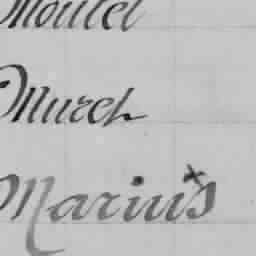 Moutet
Murch
Marius